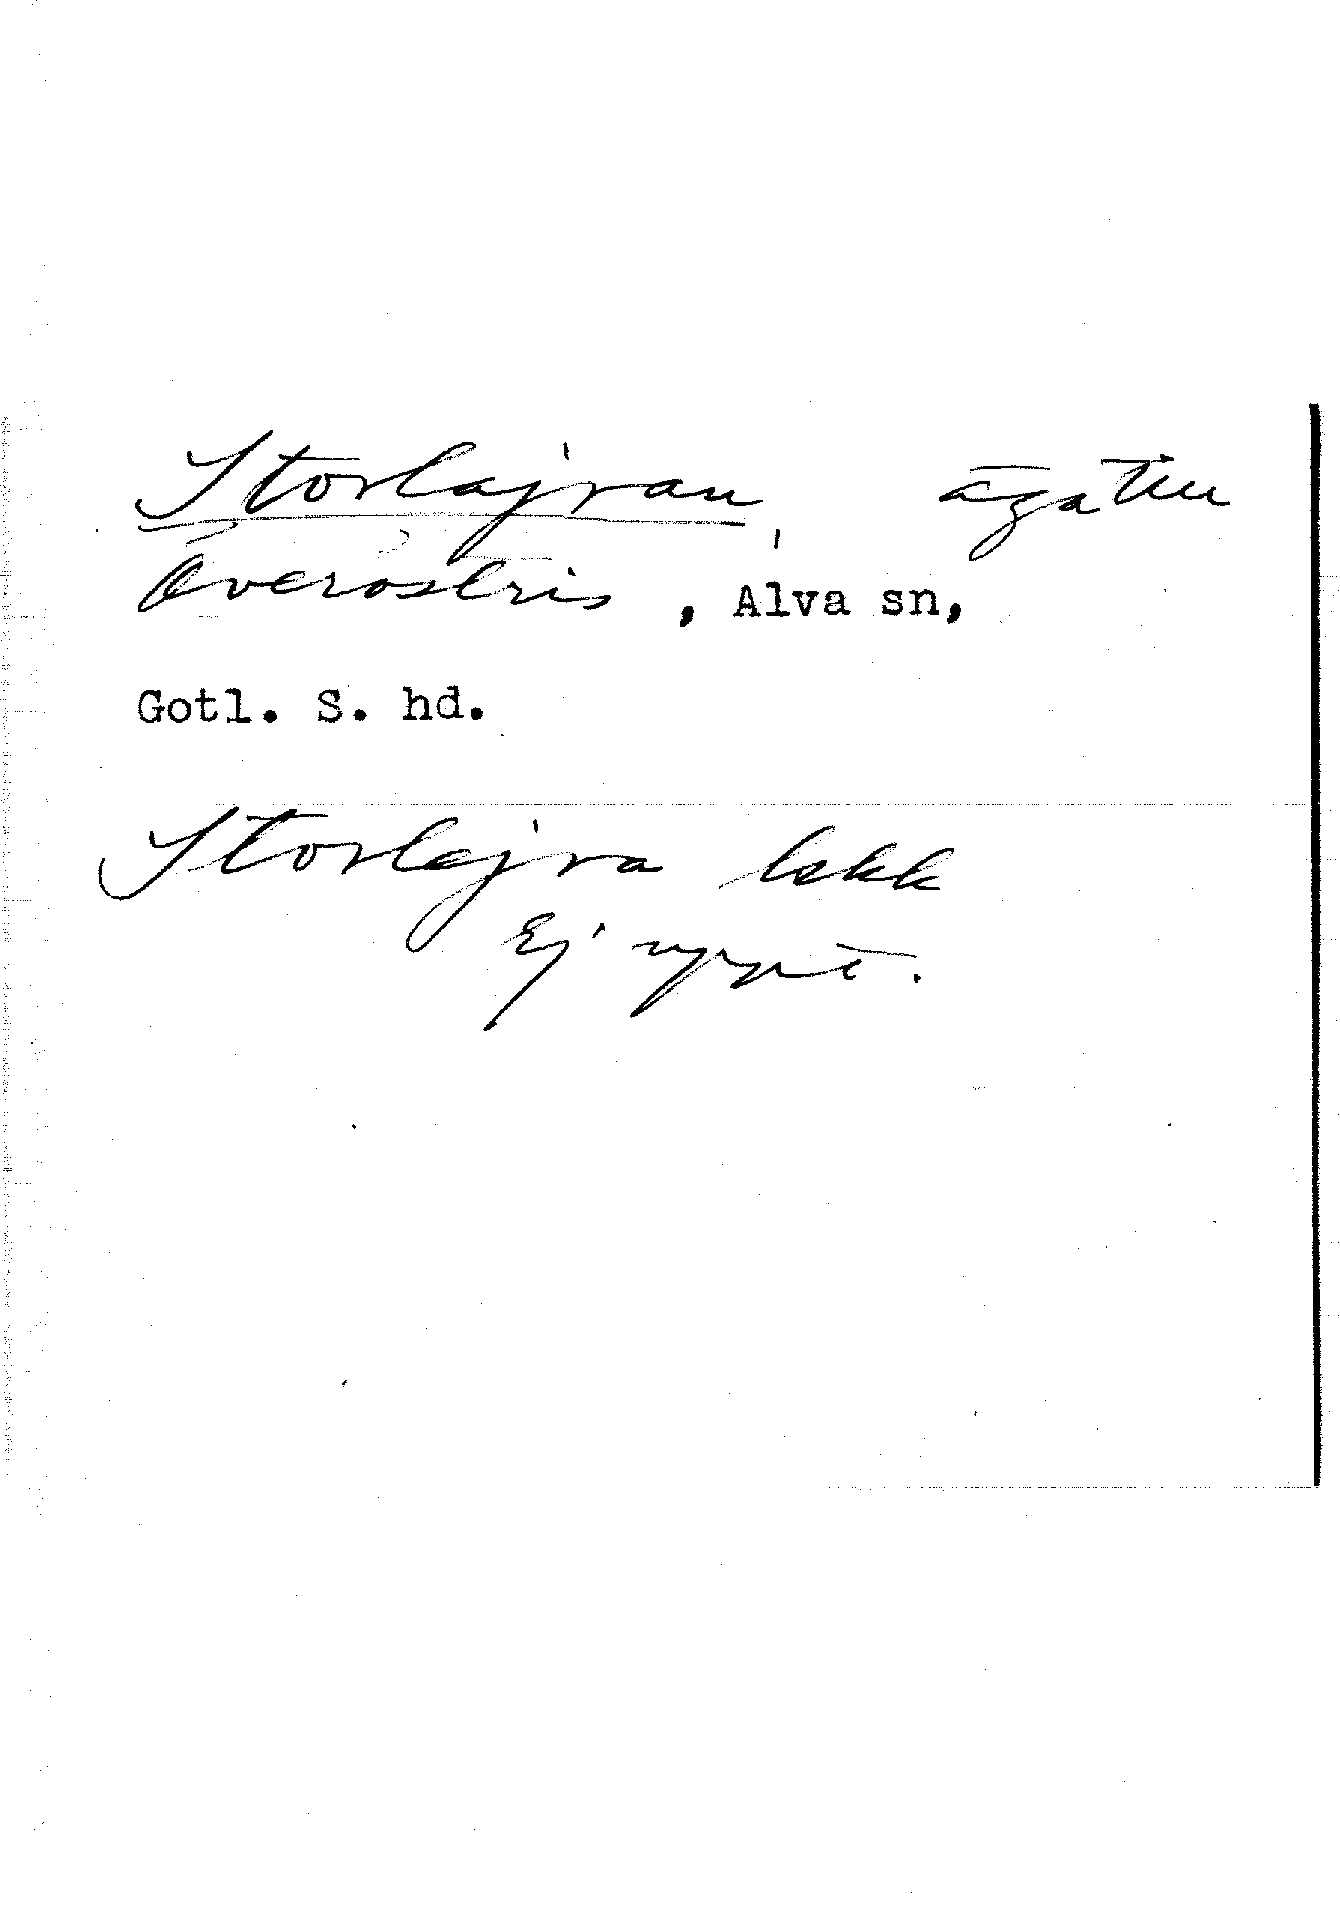 Storlajran, ägatu
Överostris, Alva sn,
Gotl. S. hd.
Storlajra lskk
Ej uppt.